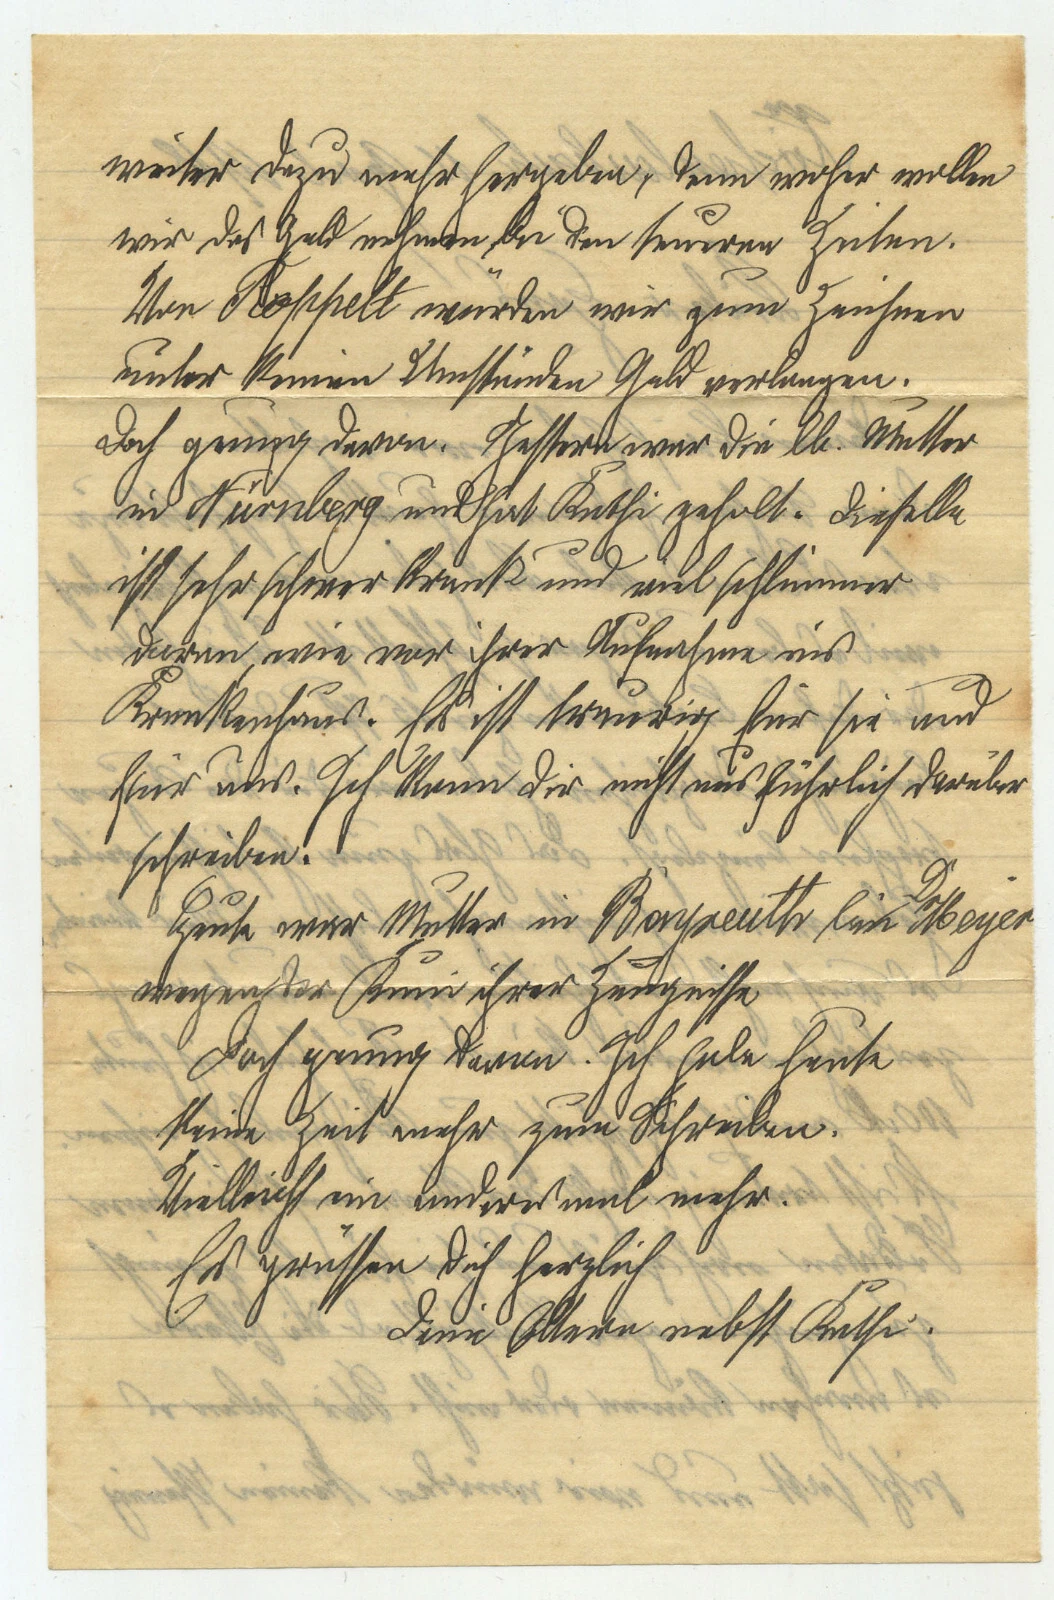 weiter dazu mehr hergeben, denn woher wollen
wir das Geld nehmen, bei den teueren Zeiten.
Von Poppelt würden wir zum Zeichnen
unter keinen Umständen Geld verlangen.
Doch genung davon. Gestern war die lb. Mutter
in Nürnberg und hat Kathi geholt. Dieselbe
ist sehr schwer krank und viel schlimmer
daran, wie vor ihrer Aufnahme ins
Krankenhaus. Es ist traurig für sie und
für uns. Ich kann dir nicht ausführlich darüber
schreiben.
Heute war Mutter in Bayreuth beim Dr Meyer
wegen der Kuni ihrer Zeugnisse
Doch genung davon. Ich habe heute
keine Zeit mehr zum Schreiben.
Vielleicht ein anderesmal mehr.
Es grüssen dich herzlich
deine Eltern nebst Kathi.